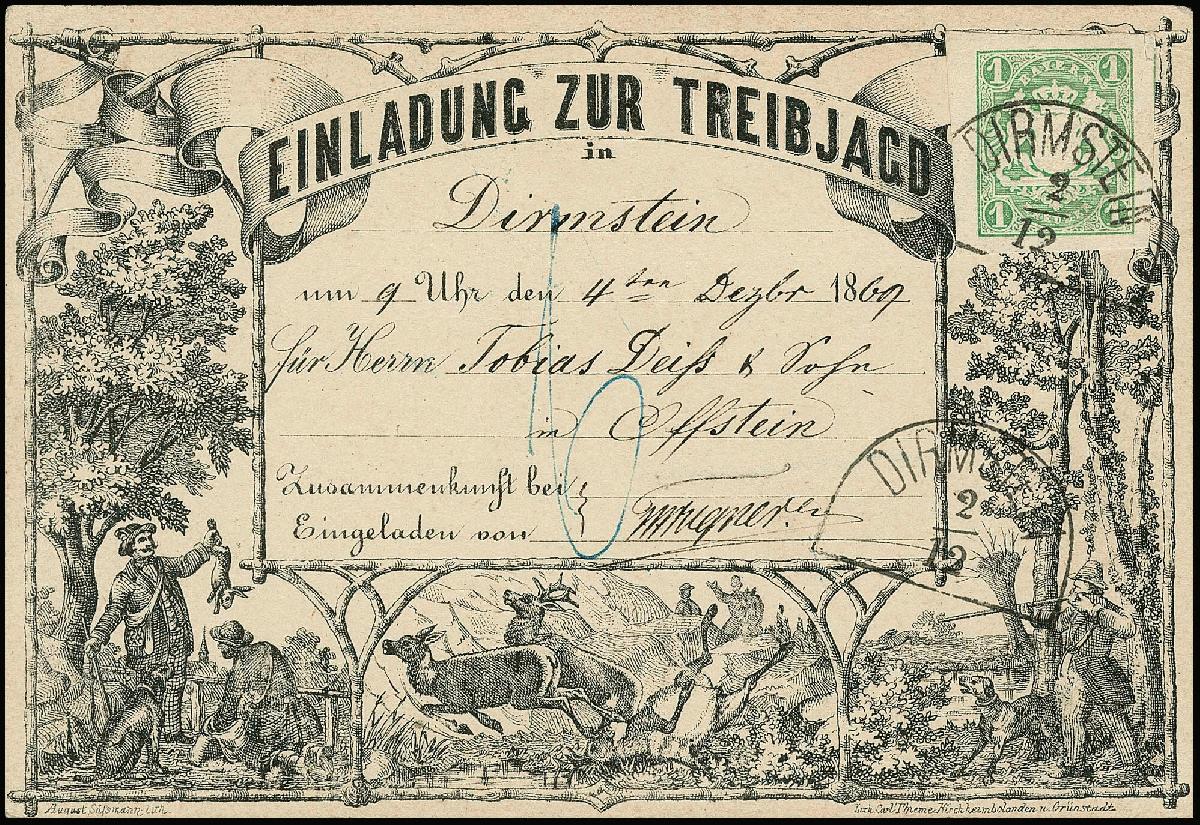 EINLADUNG ZUR TREIBJAGD
in
Dirmstein
um 9 Uhr den 4ten Dezbr 1869
für Herrn Tobias Deiß & Sohn
in Offstein
Zusammenkunft bei
Eingeladen von
1 BAYERN 1
1 1
DIRMSTEIN
2
12
DIRMST
2
12
August Süßmann lith.
Lith. Carl Thieme Kirchheimbolanden u. Grünstadt